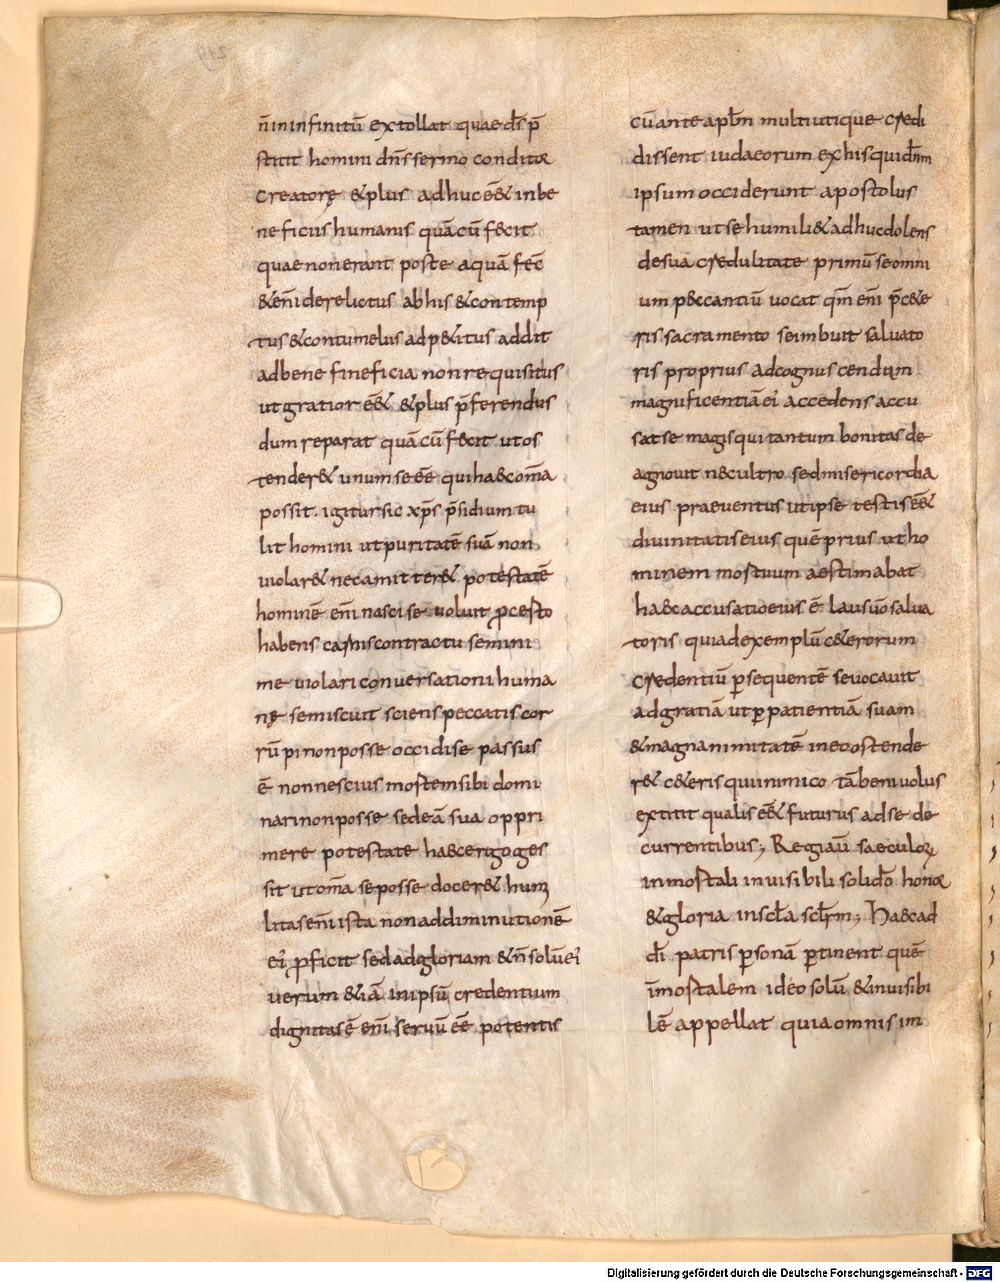 n̄ in infinitū extollat quae d̄s p̄
stitit homini dn̄s sermo conditor
creatorę &plus adhuc ē& in be
neficiis humanis quā cū fecit
quae non erant poste aquā fec̄
&enī derelictus ab his &contemp
tus &contumeliis adp&itus addit
ad bene fineficia non requisitus
ut gratior ēē& &plus p̄ferendus
dum reparat quā cū fecit ut os
tender& unum se ēē qui haec om̄a
possit. igitur sic xp̄s p̄sidium tu
lit homini ut puritatē suā non
violar& nec amitter& potestatē
hominē enī nasci se voluit p̄cesto
habens carnis contractu semini
me violari conversationi huma
nę se miscuit sciens peccatis cor
rūpi non posse occidi se passus
ē non nescius mortem sibi domi
nari non posse sed eā sua oppri
mere potestate haec ergo ges
sit ut om̄a se posse docer& humi
litas enī ista non ad diminutionē
ei' p̄ficit sed ad gloriam &n̄ solū ei'
verum &iā in ipsū credentium
dignitas ē enī servū ēē potentis
cū ante apl̄m multi utique credi
dissent iudaeorum ex his qui dn̄m
ipsum occiderunt apostolus
tamen ut se humili& adhuc dolens
de sua credulitate primū se omni
um peccantiū vocat qm̄ enī p̄ cete
ris sacramento se imbuit salvato
ris proprius ad cognuscendum
magnificentiā ei' accedens accu
sat se magis qui tantum bonitas de
agnovit nec ultro sed misericordia
eius praeventus ut ipse testis ēē&
divinitatis eius quē prius ut ho
minem mortuum aestimabat
haec accusatio eius ē laus ūo salva
toris quia de exemplū ceterorum
credentiū p̱sequentē se vocavit
ad gratiā ut p̱ patientiā suam
&magnanimitatē in eo ostende
r& ceteris qui inimico tā benivolus
extitit qualis ēē& futurus ad se de
currentibus; Regi aū saeculorꝫ
inmortali invisibili soli d̄o honor
&gloria in scl̄a scl̄rm; Haec ad
d̄i patris p̱sonā p̱tinent quē
īmortalem ideo solū &invisibi
lē appellat quia omnis im
Digitalisierung gefördert durch die Deutsche Forschungsgemeinschaft - DFG